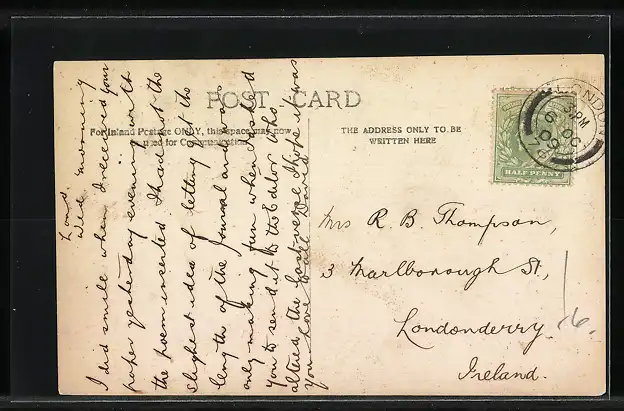 POST CARD
For Inland Postage ONLY, this space may now
used for Communication
THE ADDRESS ONLY TO BE
WRITTEN HERE
LONDON
3 PM
6 OC
09
HALF PENNY
Lond.
Wed. morning
I did smile when I received your
paper yesterday evening with
the poem inserted. I had not the
slightest idea of letting it the
length of the Journal and was
only making fun when I asked
you to send it to the Editor. Who
altered the last verse, I hope it was
you. Love to all David
Mrs R. B. Thompson,
3 Marlborough St,
Londonderry.
Ireland.